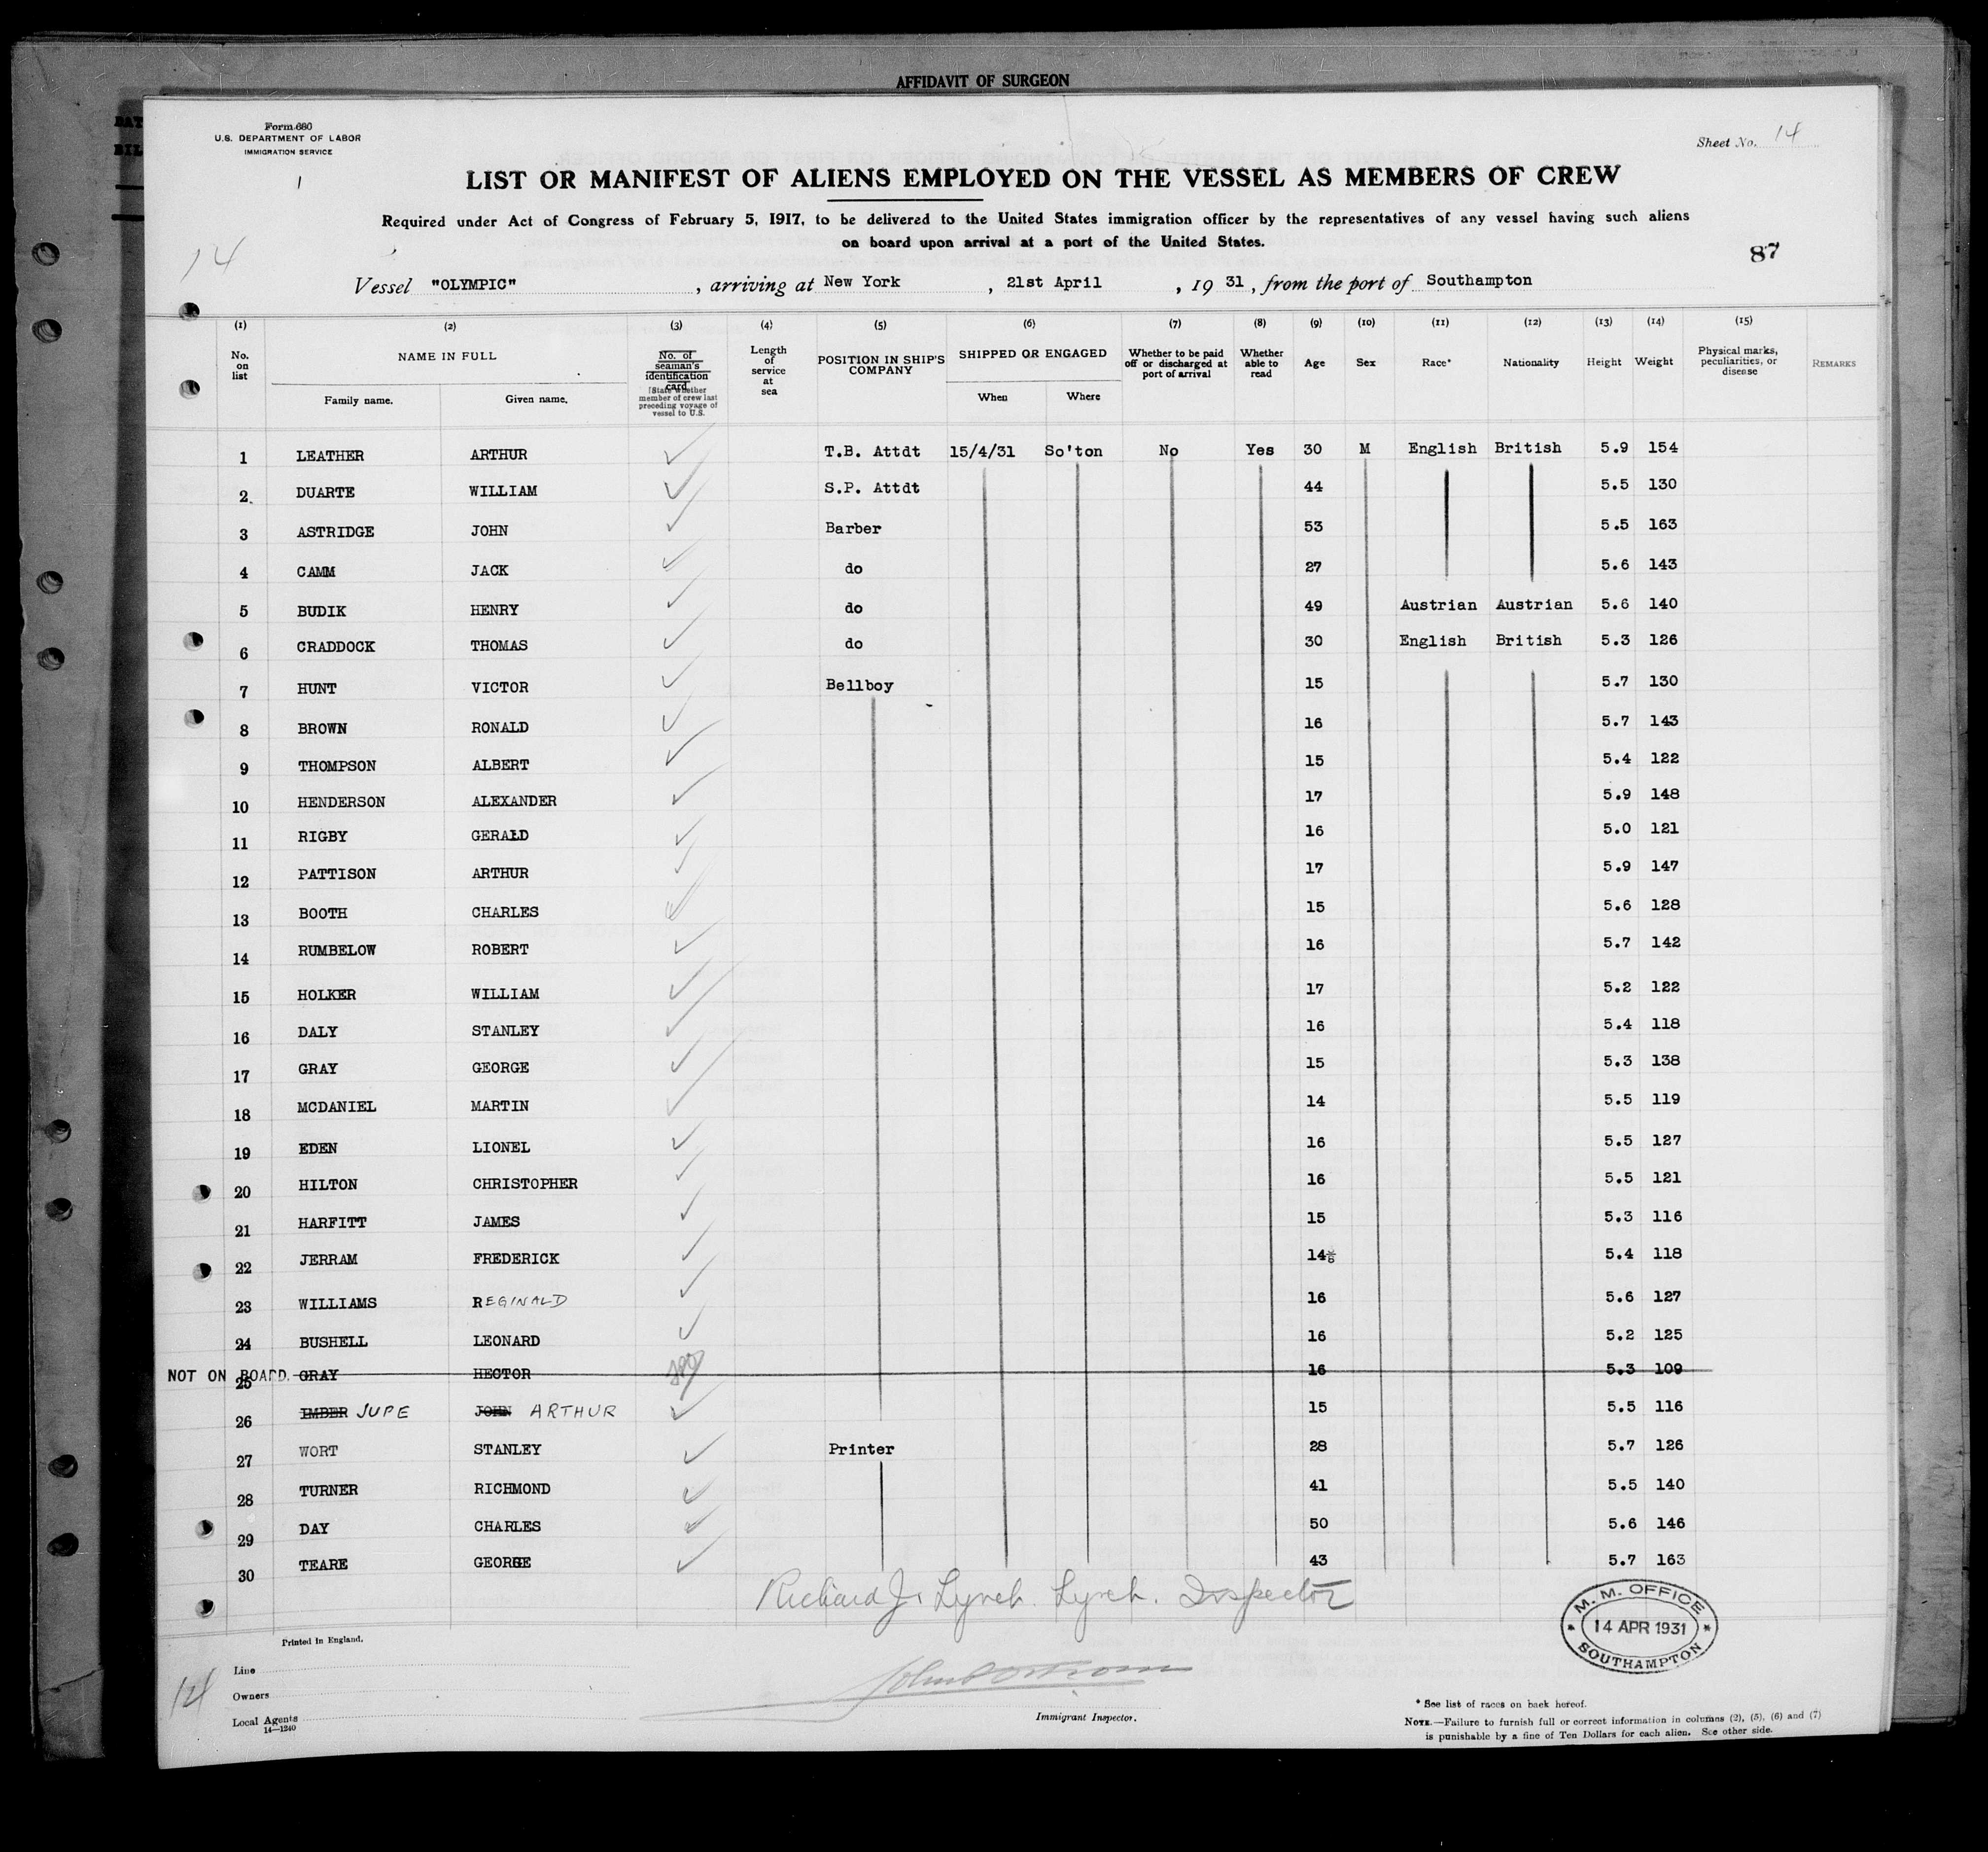 AFFIDAVIT OF SURGEON
Form 680
U.S. DEPARTMENT OF LABOR
IMMIGRATION SERVICE
Sheet No. 14
LIST OR MANIFEST OF ALIENS EMPLOYED ON THE VESSEL AS MEMBERS OF CREW
Required under Act of Congress of February 5, 1917, to be delivered to the United States immigration officer by the representatives of any vessel having such aliens
on board upon arrival at a port of the United States.
87
14
Vessel "OLYMPIC", arriving at New York, 21st April, 1931, from the port of Southampton
(1) (2) (3) (4) (5) (6) (7) (8) (9) (10) (11) (12) (13) (14) (15)
No. on list NAME IN FULL Family name. Given name. No. of seaman's identification card (State whether member of crew last preceding voyage of vessel to U.S. Length of service at sea POSITION IN SHIP'S COMPANY SHIPPED OR ENGAGED When Where Whether to be paid off or discharged at port of arrival Whether able to read Age Sex Race* Nationality Height Weight Physical marks, peculiarities, or disease REMARKS
1 LEATHER ARTHUR T.B. Attdt 15/4/31 So'ton No Yes 30 M English British 5.9 154
2 DUARTE WILLIAM S.P. Attdt 44 5.5 130
3 ASTRIDGE JOHN Barber 53 5.5 163
4 CAMM JACK do 27 5.6 143
5 BUDIK HENRY do 49 Austrian Austrian 5.6 140
6 CRADDOCK THOMAS do 30 English British 5.3 126
7 HUNT VICTOR Bellboy 15 5.7 130
8 BROWN RONALD 16 5.7 143
9 THOMPSON ALBERT 15 5.4 122
10 HENDERSON ALEXANDER 17 5.9 148
11 RIGBY GERALD 16 5.0 121
12 PATTISON ARTHUR 17 5.9 147
13 BOOTH CHARLES 15 5.6 128
14 RUMBELOW ROBERT 16 5.7 142
15 HOLKER WILLIAM 17 5.2 122
16 DALY STANLEY 16 5.4 118
17 GRAY GEORGE 15 5.3 138
18 MCDANIEL MARTIN 14 5.5 119
19 EDEN LIONEL 16 5.5 127
20 HILTON CHRISTOPHER 16 5.5 121
21 HARFITT JAMES 15 5.3 116
22 JERRAM FREDERICK 14 5.4 118
23 WILLIAMS REGINALD 16 5.6 127
24 BUSHELL LEONARD 16 5.2 125
NOT ON BOARD. 25 GRAY HECTOR 16 5.3 109
26 IMBER JUPE JOHN ARTHUR 15 5.5 116
27 WORT STANLEY Printer 28 5.7 126
28 TURNER RICHMOND 41 5.5 140
29 DAY CHARLES 50 5.6 146
30 TEARE GEORGE 43 5.7 163
Richard J. Lynch. Lynch. Inspector
M. M. OFFICE
14 APR 1931
SOUTHAMPTON
Printed in England.
14
Line
Owners
Local Agents
14—1240
Immigrant Inspector.
* See list of races on back hereof.
NOTE.—Failure to furnish full or correct information in columns (2), (5), (6) and (7)
is punishable by a fine of Ten Dollars for each alien. See other side.